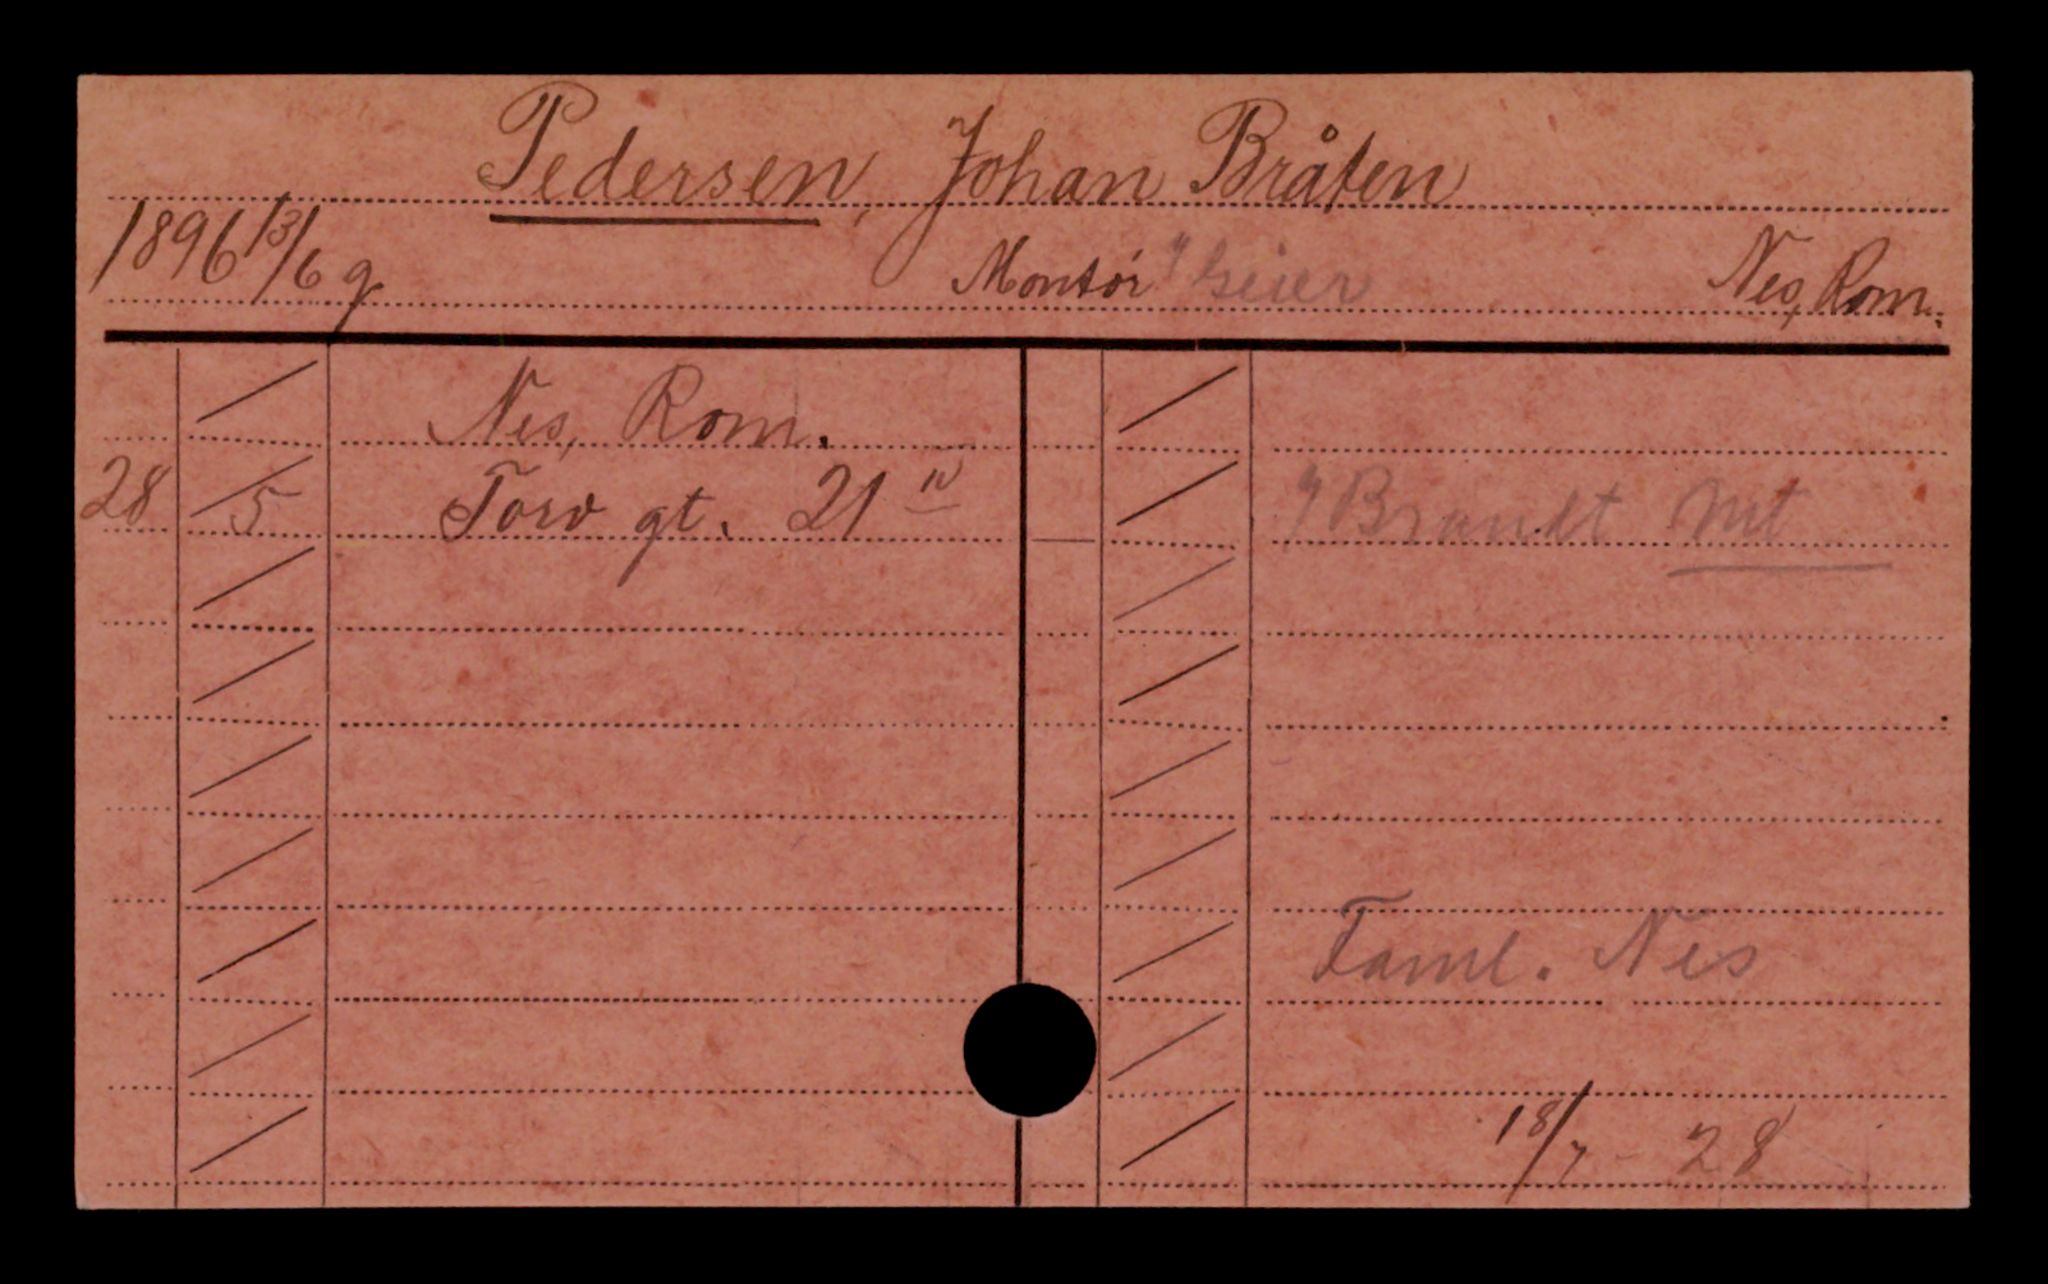 Pedersen, Johan Bråten
1896 13/6 g. Montør Nes, Rom.
Nes, Rom.
28 5 Torv gt. 21 IV
Brandt mt
Faml. Nes
18/7 - 28